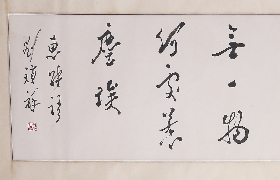 無一物
何處惹
塵埃
惠能